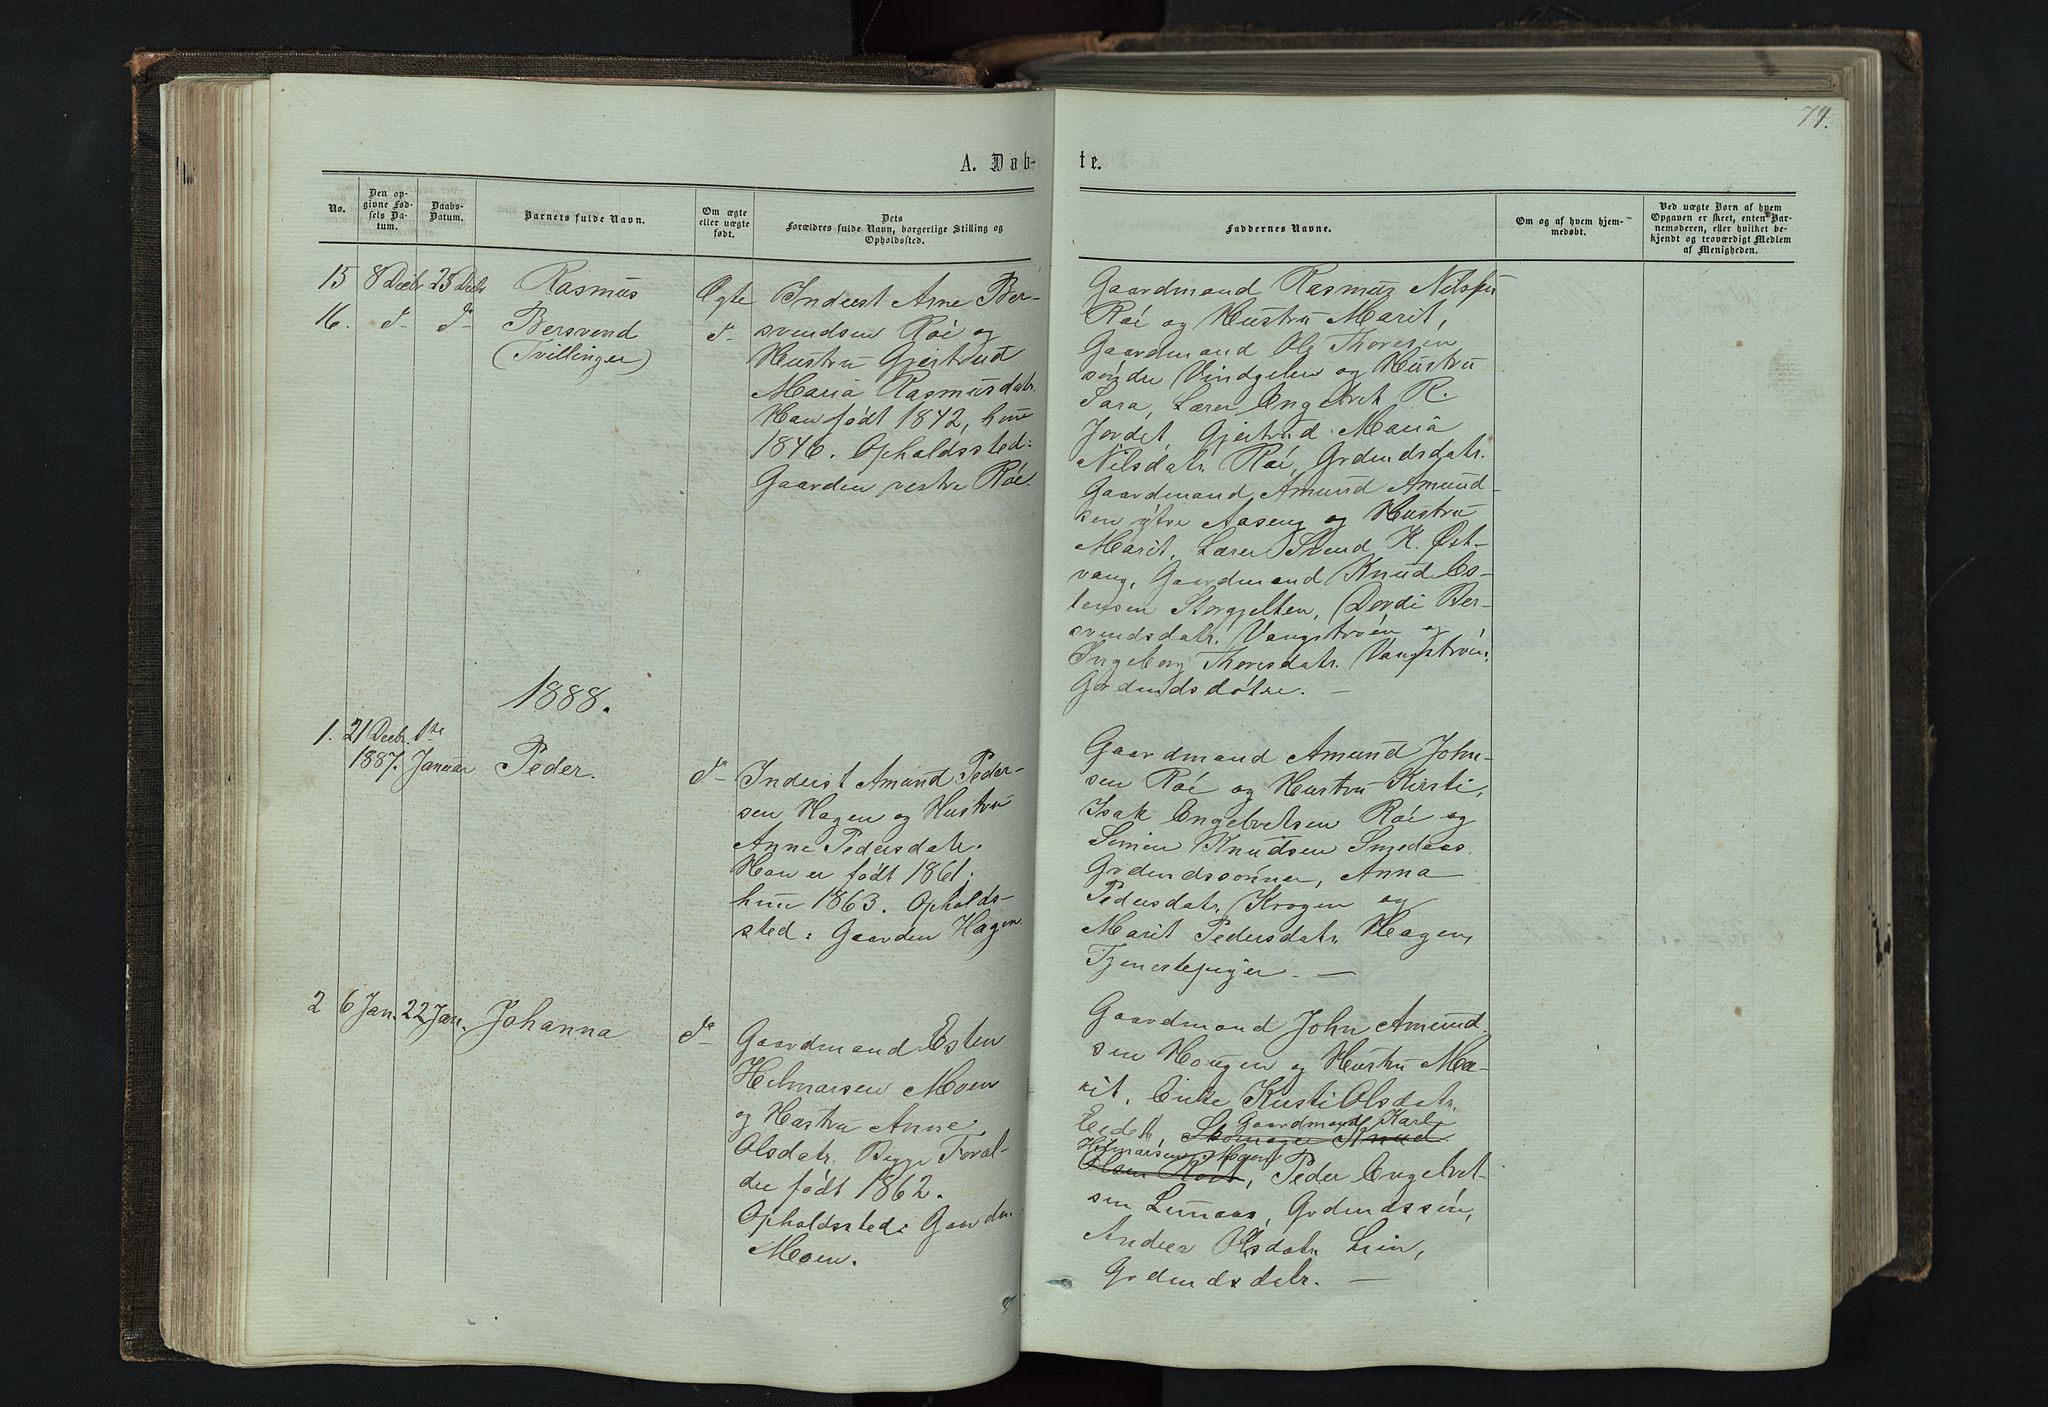 74.
A. Døb-
te.
No.
Den op-
givne Fød-
sels Da-
tum.
Daabs-
Datum.
Barnets fulde Navn.
Om ægte
eller uægte
født.
Dets
Forældres fulde Navn, borgerlige Stilling og
Opholdssted.
Faddernes Navne.
Om og af hvem hjem-
medøbt.
Ved uægte Børn af hvem
Opgaven er skeet, enten Bar-
nemoderen, eller hvilket be-
kjendt og troværdigt Medlem
af Menigheden.
15 8 Decbr 25 Decbr Rasmus Ægte
16. d- d- Bersvend d-
(Tvillinger)
Inderst Arne Ber-
svendsen Røe og
Hustru Gjertrud
Maria Rasmusdatr.
Han født 1842, hun
1846. Opholdssted:
Gaarden vestre Røe.
Gaardmand Rasmus Nilsen
Røe og Hustru Marit,
Gaardmand Ole Thoresen
søndre Vindgelen og Hustru
Sara, Lærer Engebret R.
Jordet, Gjertrud Maria
Nilsdatr. Røe, Grdmdsdatr.
Gaardmand Amund Amund-
sen ytre Aaseng og Hustru
Marit, Lærer Svend K. Øst-
vang, Gaardmand Knud Es-
tensen Storgjelten, Dordi Ber-
svendsdatr. Vangstrøen og
Ingeborg Thoresdatr. Vangstrøen,
Grdmdsdøtre. —
1888.
1. 21 Decbr. 1ste
1887. Januar Peder. d-
Inderst Amund Peder-
sen Hagen og Hustru
Anne Pedersdatr.
Han er født 1861,
hun 1863. Opholds-
sted: Gaarden Hagen.
Gaardmand Amund John-
sen Røe og Hustru Kirsti,
Isak Engebretsen Røe og
Simen Knudsen Smedaas
Grdmdssønner, Anna
Pedersdatr. Krogen og
Marit Pedersdatr. Hagen,
Tjenestepiger. —
2 6 Jan. 22 Jan. Johanna d-
Gaardmand Esten
Hilmarsen Moen
og Hustru Anne
Olsdatr. Begge Foræl-
dre født 1862.
Opholdssted: Gaarden
Moen.
Gaardmand John Amund-
sen Haugen og Hustru Ma-
rit, Enke Kirsti Olsdatr.
Gaardmand Karl
Eidet, Skomager Knud
Hilmarsen Moen
Olsen, Peder Engebret-
sen Lunaas, Grdmdssøn,
Andrea Olsdatr. Lien,
Grdmdsdatr. —